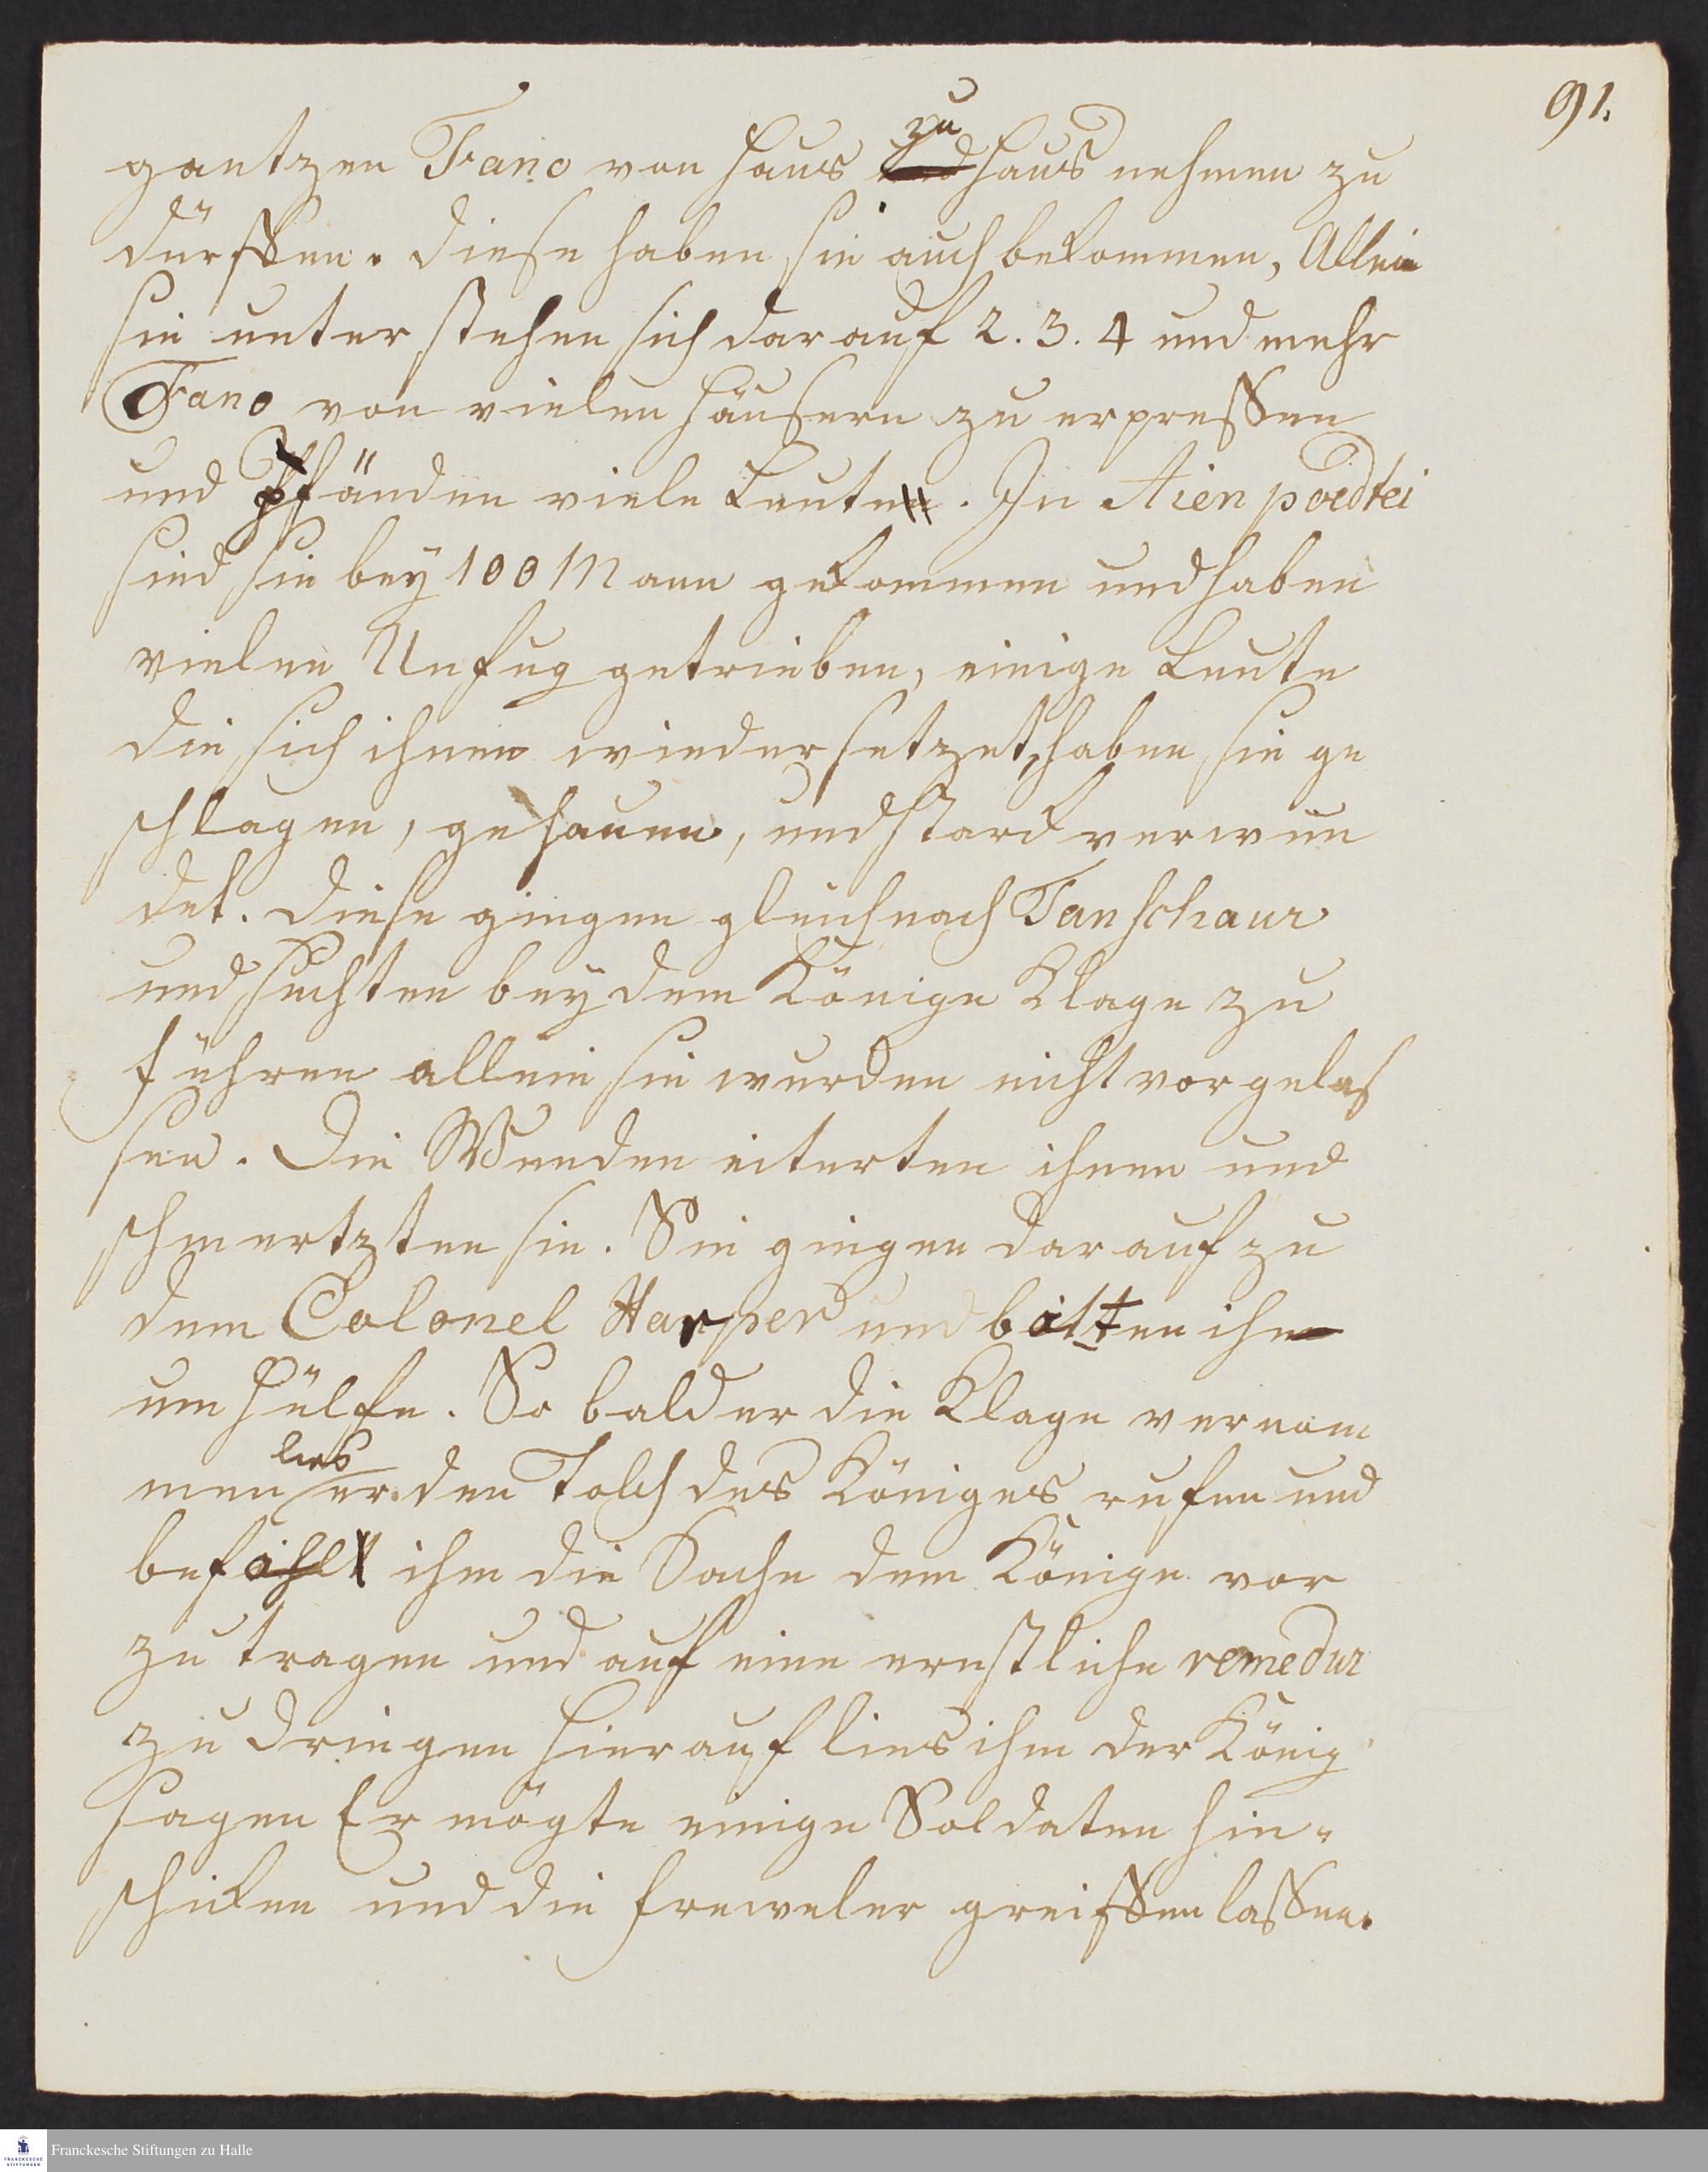 91.
gantzen Fano von Haus zu Haus nehmen zu
dürffen. Diese haben sie auch bekommen, Allein
sie unter stehen sich darauf 2. 3. 4 und mehr
Fano von vielen Häusern zu erpressen
und Pfänden viele Leute. In Aienpoedtei
sind sie bey 100 Mann gekommen und haben
vielen Unfug getrieben, einige Leute
die sich ihnen wiedersetzet, haben sie ge
schlagen, gehauen, und starck verwun
det. Diese gingen gleich nach Tanschaur
und suchten bey dem Könige Klage zu
führen allein sie wurden nicht vorgelas
sen. Die Wunden eiterten ihnen und
schmertzten sie. Sie gingen darauf zu
dem Colonel Harper und batten ihn
um Hülfe. So bald er die Klage vernom
men lies er den Tolch des Königes rufen und
befahl ihm die Sache dem Könige vor
zu tragen und auf eine ernstliche remedur
zu dringen hierauf lies ihm der König
sagen Er mögte einige Soldaten hin-
schicken und die freweler greiffen lassen.
Franckesche Stiftungen zu Halle
FRANCKESCHE
STIFTUNGEN